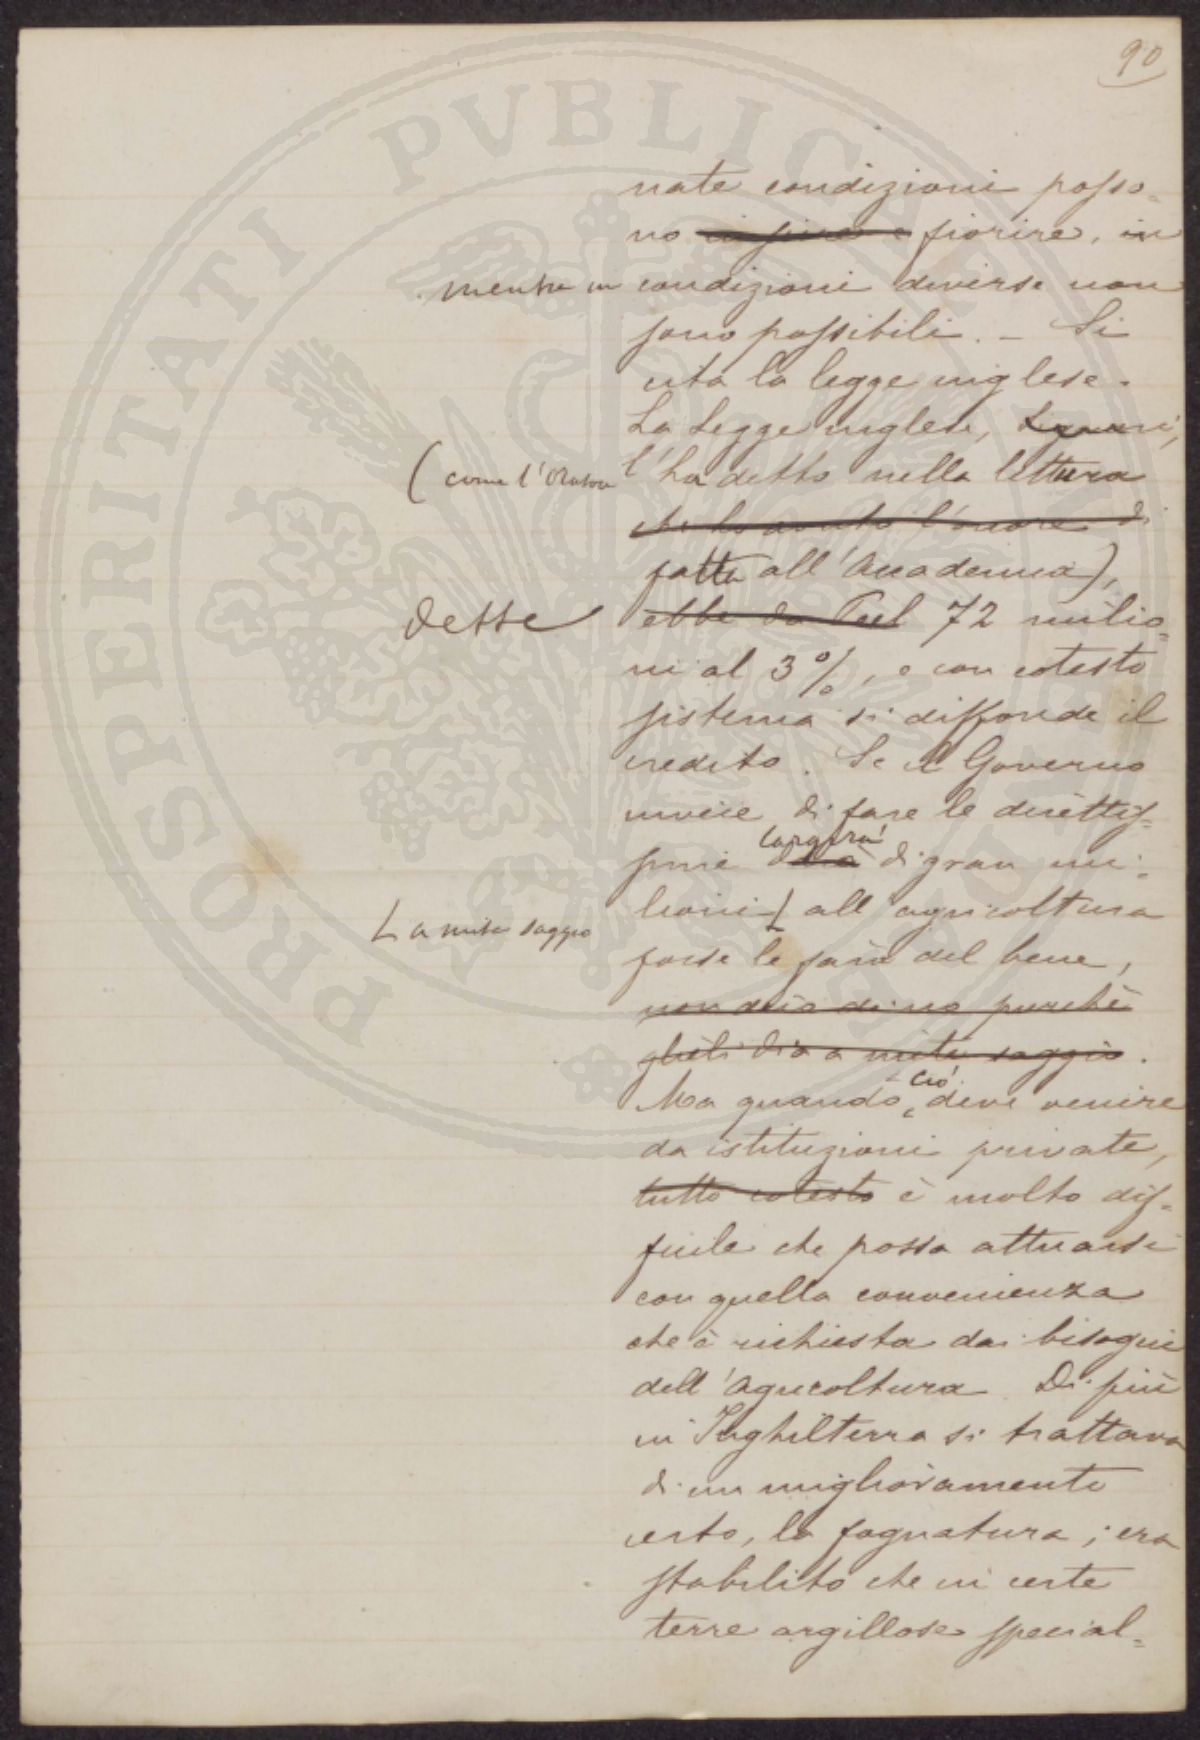 90
nate condizioni posso=
no fiorire, in
mentre in condizioni diverse non
sono possibili. - Si
cita la legge inglese.
La Legge inglese, Signori,
(come l'Oratore l'ha detto nella lettura
che ho avuto l'onore di
fatta all'Accademia),
dette ebbe da Peel 72 milio=
ni al 3%, e con cotesto
sistema si diffonde il
credito. Se il Governo
invece di fare le direttis=
sime largirà darà di gran mi=
lioni all'agricoltura
a mite saggio
forse le farà del bene,
non dirò di no purchè
glieli dia a mite saggio.
Ma quando ciò deve venire
da istituzioni private,
tutto cotesto è molto dif=
ficile che possa attuarsi
con quella convenienza
che è richiesta dai bisogni
dell'Agricoltura Di più
in Inghilterra si trattava
di un miglioramento
certo, la fognatura; era
stabilito che in certe
terre argillose special=
PROSPERITATI PVBLICAE